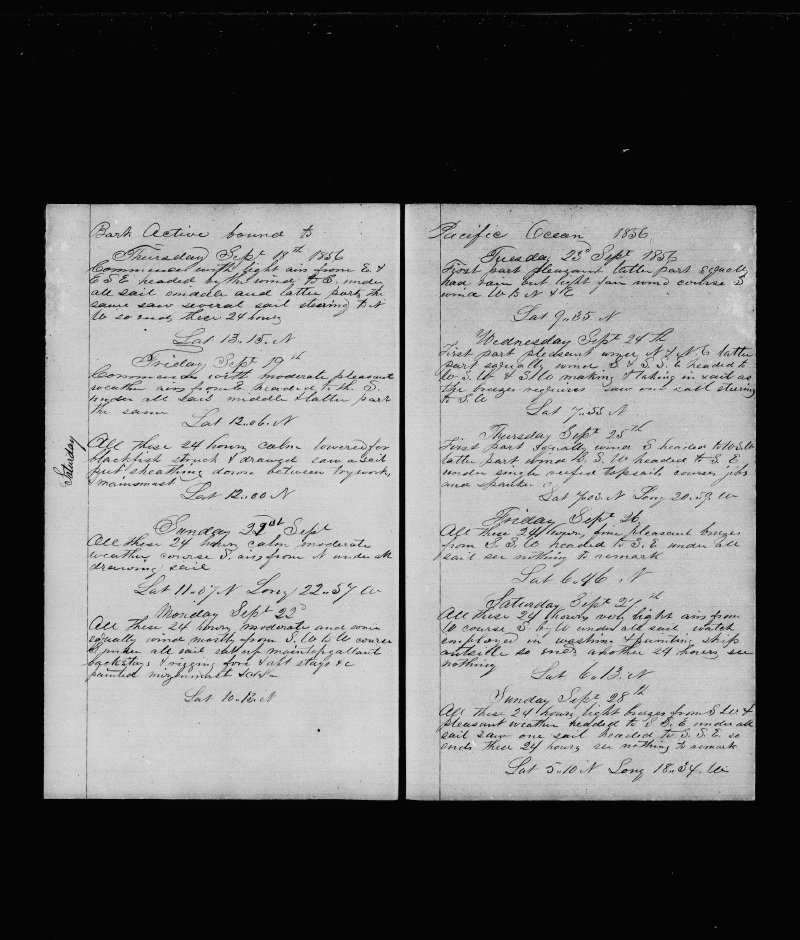 Bark Active bound to
Thursday Sept 18th 1856
Commences with light airs from E &
E S E headed by the wind to S. under
all sail middle and latter part the
same saw several sail steering to N
W so ends these 24 hours
Lat 13..15. N
Friday Sept 19th
Commences with moderate pleasant
weather airs from E headed to the S.
under all sail middle & latter part
the same
Lat 12..06. N
Saturday
All these 24 hours calm lowered for
blackfish struck & drawed saw a sail
put sheathing down between tryworks
& mainmast
Lat 12..00 N
Sunday 21st Sept
All these 24 hours calm moderate
weather course S. airs from N under all
drawing sail
Lat 11..07 N Long 22..57 W
Monday Sept 22d
All these 24 hours moderate and some
squally wind mostly from S. W to W course
under all sail set up maintopgallant
backstays & rigging fore & aft stays &c
painted mizenmast
Lat 10..12. N
Pacific Ocean 1856
Tuesday 23d Sept 1856
First part pleasant latter part squally
had rain but light fair wind course S
wind W B N & E
Lat 9..35 N
Wednesday Sept 24th
First part pleasant wind N & N. E latter
part squally wind S & S. S. E headed to
W S. W & S W making & taking in sail as
the breeze requires saw one sail steering
to S. W
Lat 7..55 N
Thursday Sept 25th
First part squally wind S headed to W S. W
latter part wind W. S. W headed to S. E
under single reefed topsails courses jibs
and spanker
Lat 7..03 N Long 20..59 W
Friday Sept 26
All these 24 hours fine pleasant breezes
from S. S. W headed to S. E under all
sail see nothing to remark
Lat 6..46 N
Saturday Sept 27th
All these 24 hours very light airs from
W course S by W under all sail watch
employed in washing & painting ship
outside so ends another 24 hours see
nothing
Lat 6..13. N
Sunday Sept 28th
All these 24 hours light breezes from S W &
pleasant weather headed to S. S. E under all
sail saw one sail headed to S. S. E. so
ends these 24 hours see nothing to remark
Lat 5..10 N Long 18..34. W